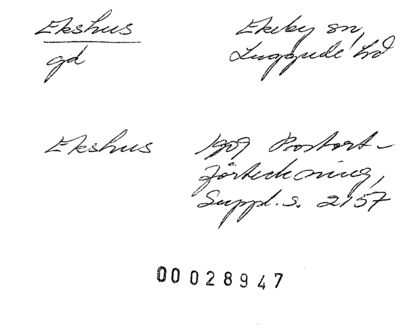 Ekshus
gd
Ekeby sn,
Luggude hd
Ekshus
1909 Postort-
förteckning,
Suppl. s. 2157
00028947